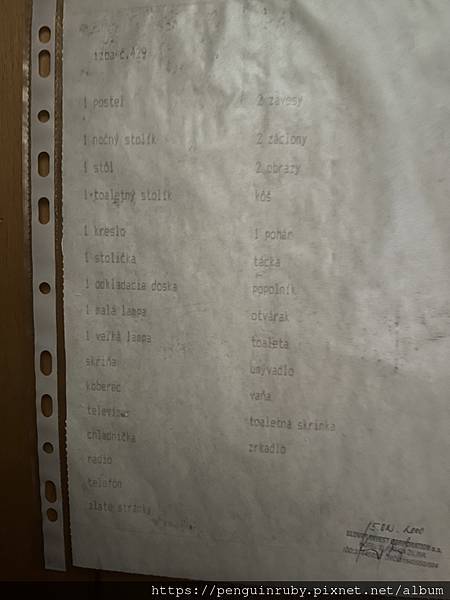 izba č.429
1 posteľ
1 nočný stolík
1 stôl
1 toaletný stolík
1 kreslo
1 stolička
1 odkladacia doska
1 malá lampa
1 veľká lampa
skriňa
koberec
televízor
chladnička
radio
telefón
zlaté stránky
2 závesy
2 záclony
2 obrazy
kôš
1 pohár
tácka
popolník
otvárak
toaleta
umývadlo
vaňa
toaletná skrinka
zrkadlo
https://penguinruby.pixnet.net/album